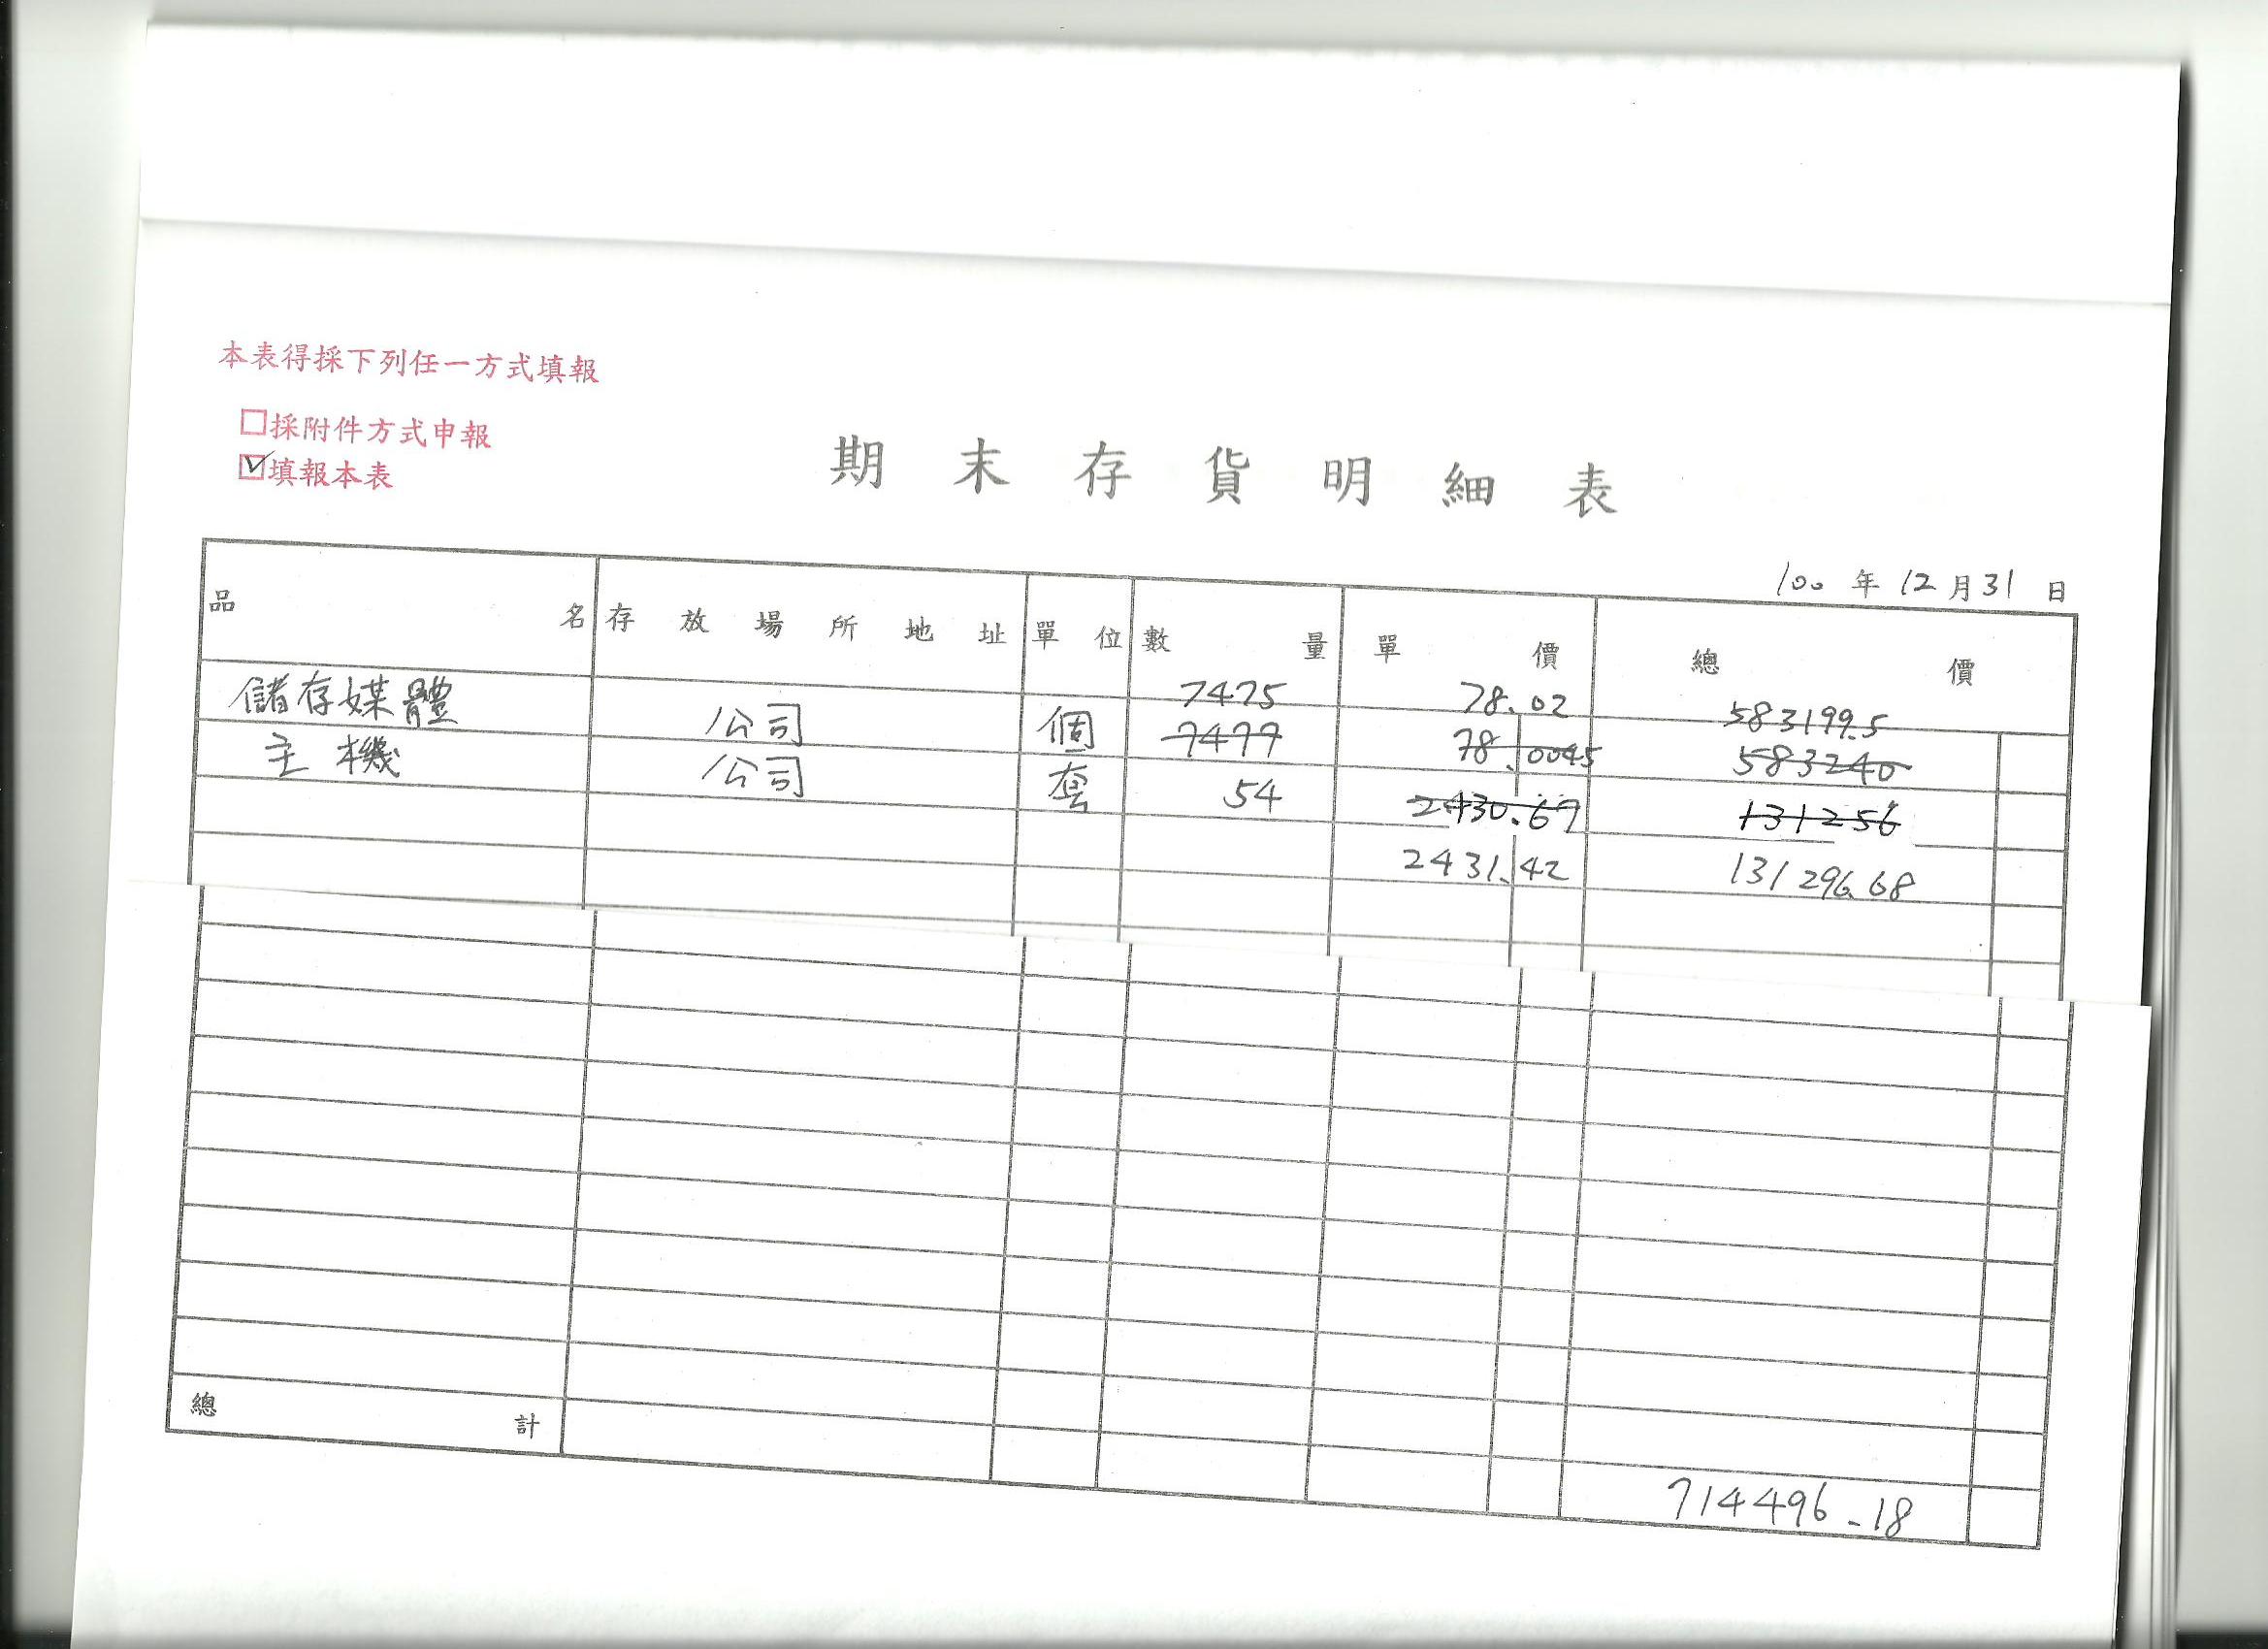 本表得採下列任一方式填報
□採附件方式申報
☑填報本表
期末存貨明細表
100 年 12 月 31 日
品名 存放場所地址 單位 數量 單價 總價
7475 78.02 583199.5
儲存媒體 公司 個 7477 78.0045 583240
主機 公司 套 54 2430.67 131256
2431.42 131296.68
總計 714496.18